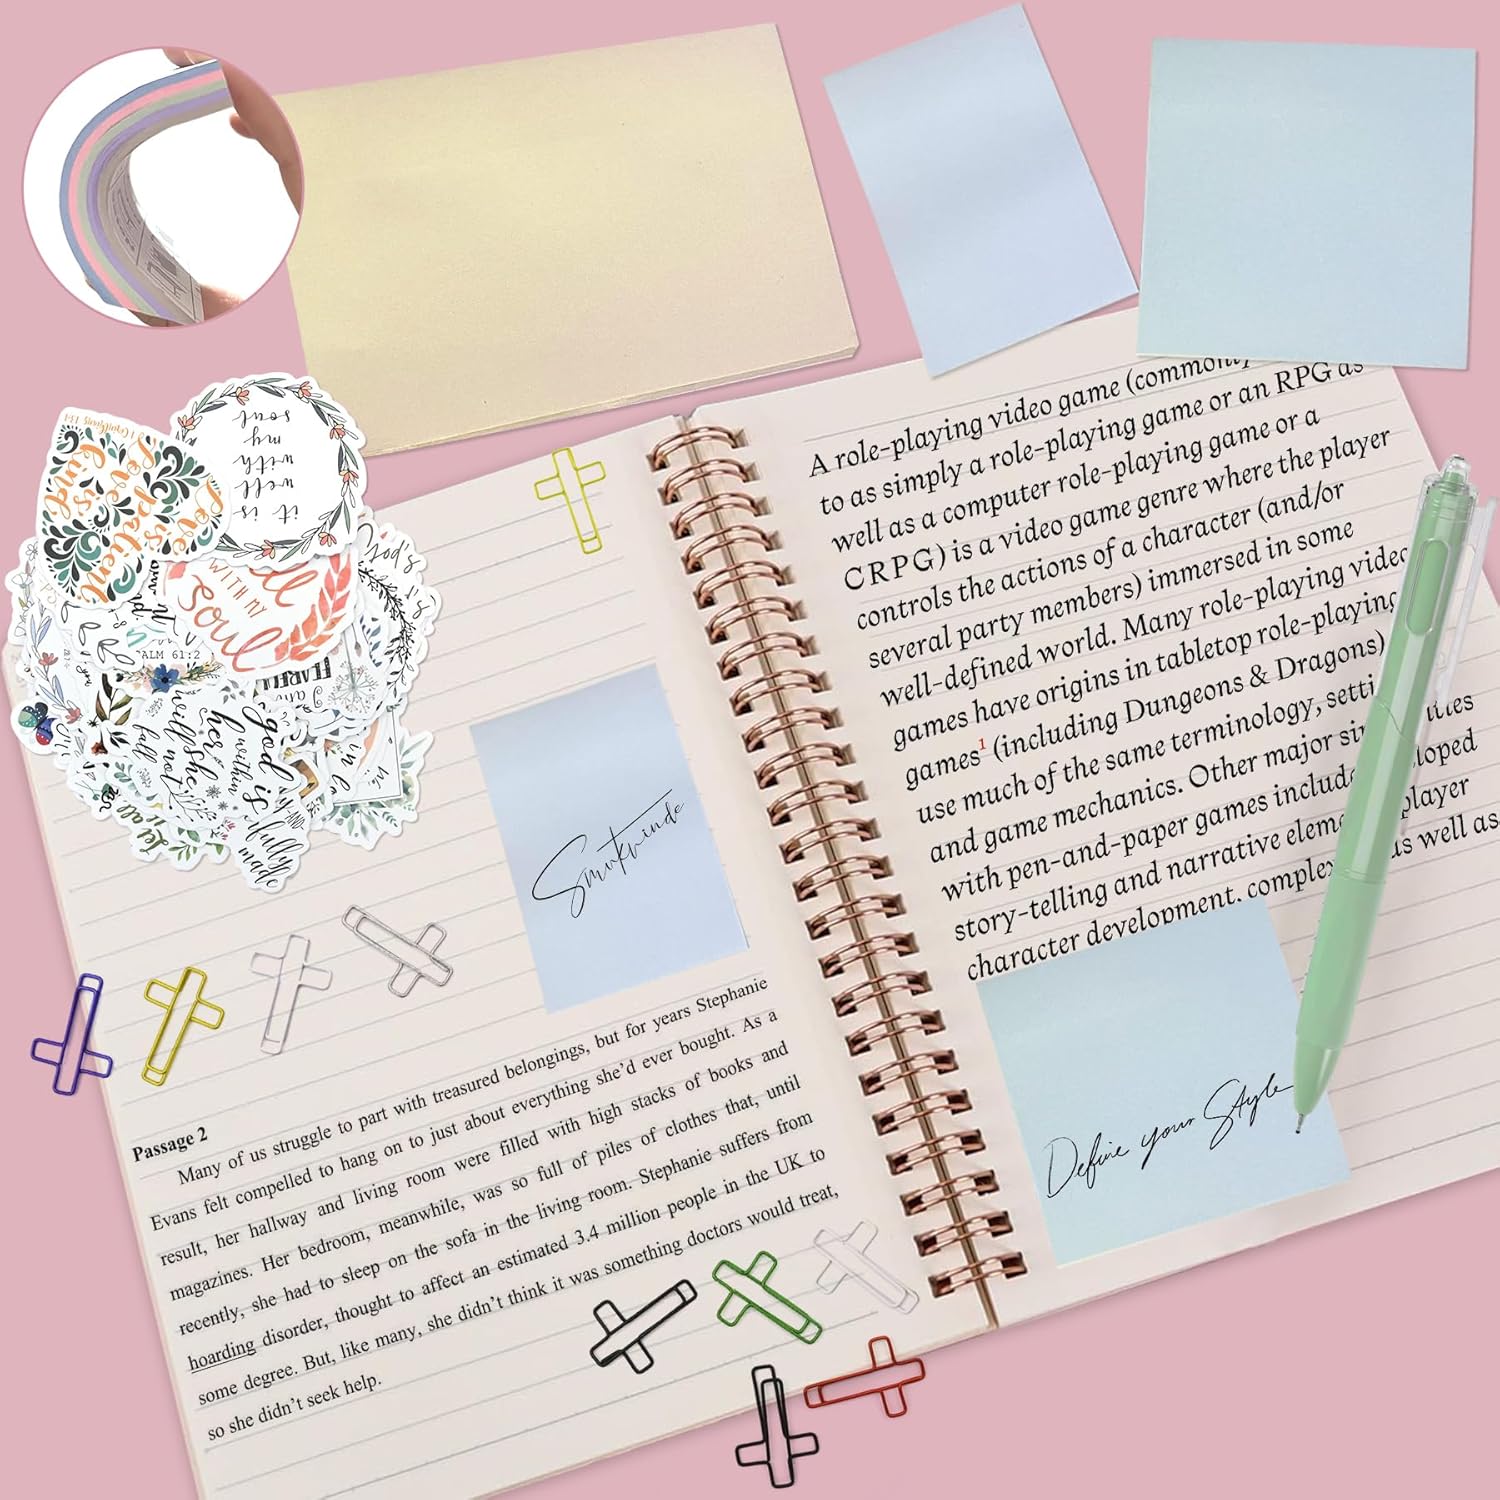 it is
well
with
my
soul
Love is
patient
Love
is
kind
1 Corinthians 13:4
God's
WITH MY
Soul
PSALM 61:2
god is
within
her
she
will not
fall
fully
made
Smukwinde
Passage 2
Many of us struggle to part with treasured belongings, but for years Stephanie
Evans felt compelled to hang on to just about everything she'd ever bought. As a
result, her hallway and living room were filled with high stacks of books and
magazines. Her bedroom, meanwhile, was so full of piles of clothes that, until
recently, she had to sleep on the sofa in the living room. Stephanie suffers from
hoarding disorder, thought to affect an estimated 3.4 million people in the UK to
some degree. But, like many, she didn't think it was something doctors would treat,
so she didn't seek help.
A role-playing video game (commonly
to as simply a role-playing game or an RPG as
well as a computer role-playing game or a
CRPG) is a video game genre where the player
controls the actions of a character (and/or
several party members) immersed in some
well-defined world. Many role-playing video
games have origins in tabletop role-playing
games1 (including Dungeons & Dragons)
use much of the same terminology, setti
and game mechanics. Other major similarities
with pen-and-paper games include developed
story-telling and narrative elements, player
character development, complexity, as well as
Define your Style